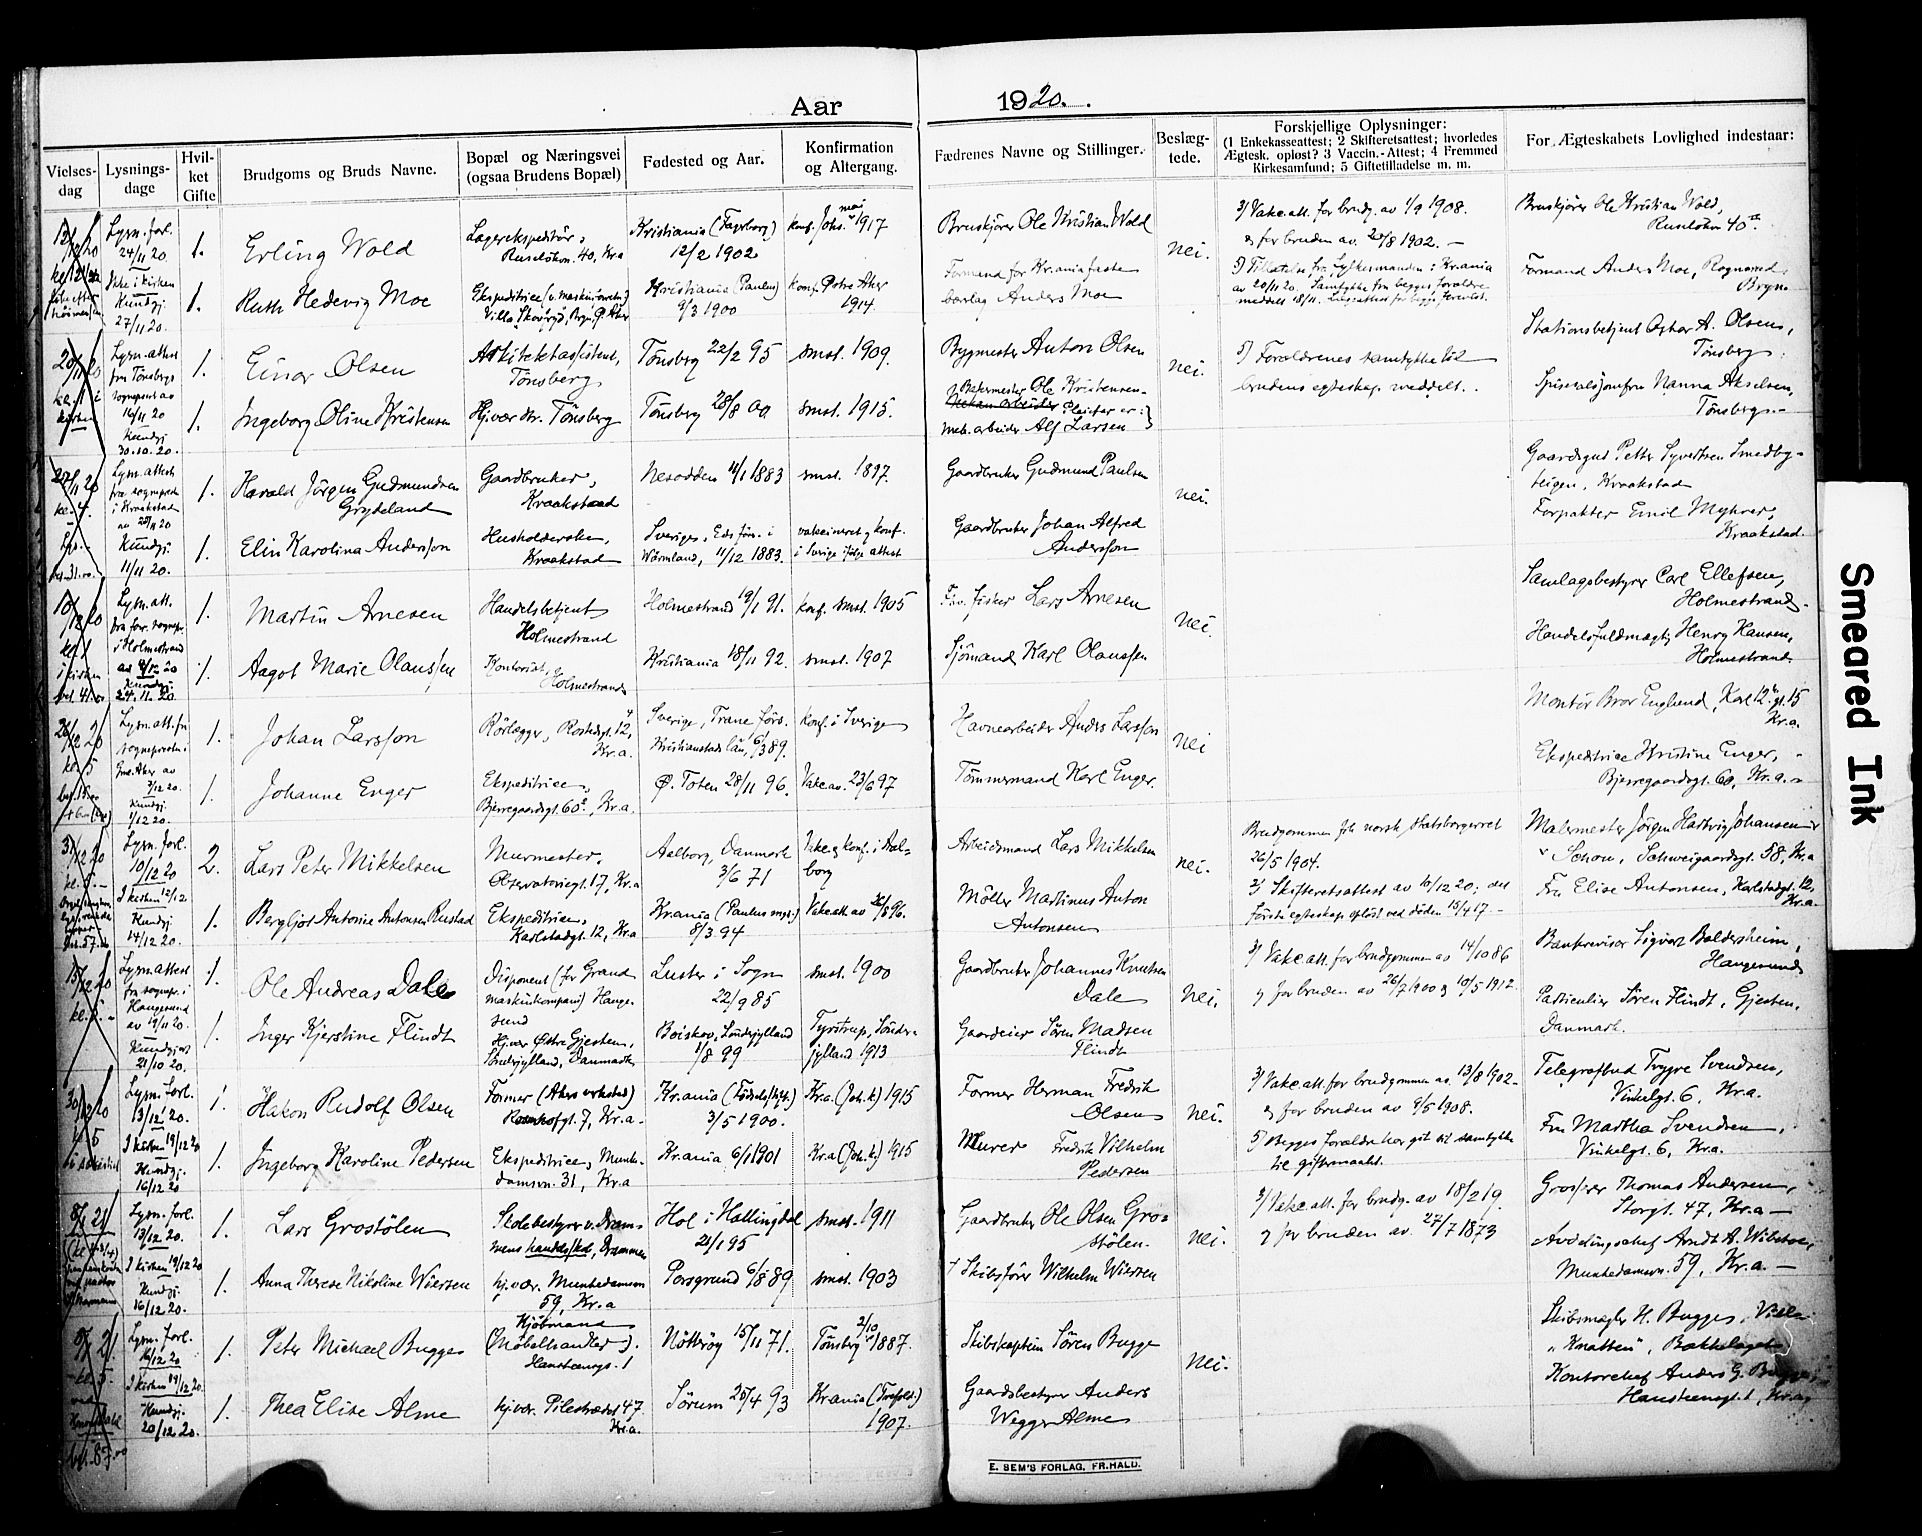 Aar 1920.
Vielses-dag
Lysnings-dage
Hvil-ket Gifte
Brudgoms og Bruds Navne.
Bopæl og Næringsvei (ogsaa Brudens Bopæl)
Fødested og Aar.
Konfirmation og Altergang.
Fædrenes Navne og Stillinger.
Beslæg-tede.
Forskjellige Oplysninger:
(1 Enkekasseattest; 2 Skifteretsattest; hvorledes Ægtesk. opløst? 3 Vaccin.-Attest; 4 Fremmed Kirkesamfund; 5 Giftetilladelse m. m.
For Ægteskabets Lovlighed indestaar:
Lysn. forl.
24/11 20.
Ikke i kirken
Kundgj.
27/11 20.
1.
Erling Wold
Lagerekspeditør,
Ruseløkv. 40, Kr.a
Kristiania (Fagerborg)
12/2 1902
konf. Johs. mai 1917
Bruskjører Ole Kristian Wold
nei.
3) Vakc. att. for brudg. av 1/9 1908.
og for bruden av 20/8 1902. –
Bruskjører Ole Kristian Wold,
Ruseløkv 40
1.
Ruth Hedevig Moe
Kristiania (Paulus)
9/3 1900
konf. Petr. Aker
1914.
Formand for Kr.ania faste
Anders Moe
av 20/11 20. Samtykke fra begges forældre
meddelt 18/11.
Formand Anders Moe,
Bryn.
Lysn. attest
fra Tønsbergs
16/11 20
Kundgj.
30.10.20.
1.
Einar Olsen
Arkitektassistent,
Tønsberg
Tønsberg 22/2 95
smst. 1909.
Bygmester Anton Olsen
nei.
5) Forældrenes samtykke til
brudens egteskap meddelt.
Stationsbetjent Oskar A. Olsen,
Tønsberg.
1.
Ingeborg Oline Kristensen
Hj.vær. Tønsberg
Tønsberg 28/8 00
smst. 1915.
Bakermester Ole Kristensen
Pleiefar er:
mek. arbeider Alf Larsen
Nanna Akselsen,
Tønsberg.
Lysn. attest
fra sogneprest
i Kraakstad
Kundgj.
11/11 20.
1.
Harald Jørgen Gudmundsen
Grydeland
Gaardbruker,
Kraakstad
Nesodden 4/1 1883
smst. 1897.
Gaardbruker Gudmund Paulsen
nei.
Gaardsgut Petter Syvertsen Smedby-
teigen, Kraakstad
1.
Elin Karolina Andersson
Husholderske,
Kraakstad
Sverige, Eds førs. i
Wärmland, 11/12 1883.
vakcineret og konf.
i Sverige ifølge attest
Gaardbruker Johan Alfred
Andersson
Forpakter Emil Myhrer,
Kraakstad.
Lysn. att.
fra for. sognepr.
i Holmestrand
Kundgj.
24.11.20.
1.
Martin Arnesen
Handelsbetjent
Holmestrand
Holmestrand 19/1 91.
konf. smst. 1905
Fhv. fisker Lars Arnesen
nei.
Samlagsbestyrer Carl Ellefsen,
Holmestrand.
1.
Aagot Marie Olaussen
Kontorist,
Holmestrand
Kristiania 18/11 92.
smst. 1907
Sjømand Karl Olaussen
Handelsfuldmægtig Henry Hansen,
Holmestrand
Lysn. att. fra
sogneprest i
Kundgj.
1/12 20.
1.
Johan Larsson
Rørlægger,
Kr.a.
Sverige, Trane førs.
Kristianstads län, 6/3 89.
konf. i Sverige
Havnearbeider Anders Larsson
nei
Montør Bror Englund,
Kr.a.
1.
Johanne Enger
Ekspeditrice,
Bjerregaardsgt. 60, Kr.a.
Ø. Toten 28/11 96.
Vakc. av. 23/6 97
Tømmermand Karl Enger.
Ekspeditrice Kristine Enger,
Bjerregaardsgt. 60, Kr.a.
Lysn. forl.
10/12 20
I kirken 12/12
Kundgj.
14/12 20.
2.
Lars Peter Mikkelsen
Murmester,
Observatoriegt. 17, Kr.a
Aalborg, Danmark
3/6 71
Vakc. og konf. i Aal-
borg
Arbeidsmand Lars Mikkelsen
nei.
Brudgommen fik norsk statsborgerret
26/5 1904.
2) Skifteretsattest av 10/12 20; det
første egteskap opløst ved døden 15/4 17. –
Malermester Jørgen Hartvig Johansen
Schou, Schweigaardsgt. 58, Kr.a
1.
Bergljot Antonie Antonsen Rustad
Ekspeditrice,
Karlstadgt. 12, Kr.a
Kr.ania (Paulus mgh.)
8/3 94
Vakc. att. av 96.
Møller Martinus Anton
Antonsen
Fru Elise Antonsen, Karlstadgt. 12,
Kr.a
Lysn. attest
fra sognepr. i
Haugesund
av 19/11 20.
Kundgj.
21/10 20.
1.
Ole Andreas Dale
Disponent (for Grand
maskinkompani) Hauge-
sund
Luster i Sogn
22/9 85
smst. 1900
Gaardbruker Johannes Knutsen
Dale
nei.
3) Vakc. att. for brudgommen av 14/10 86
og for bruden av 26/7 1900 og 10/5 1912.
Bankrevisor Sigurd Baldersheim,
Haugesund
1.
Inger Kjerstine Flindt
Hj.vær Østre Gjesten,
Sønderjylland, Danmark
Sønderjylland
1/8 99
Tyrstrup, Sønder-
jylland 1913
Gaardeier Søren Madsen
Flindt
Particulier Søren Flindt, Gjesten,
Danmark.
30/12 20
Lysn. forl.
13/12 20.
I kirken 19/12 20
Kundgj.
16/12 20
1.
Håkon Rudolf Olsen
Former (Akers verksted)
Kr.a.
Kr.ania (Fødselsstift.)
3/5 1900.
Kr.a. (Joh. k.) 1915
Former Herman Fredrik
Olsen
nei.
3) Vakc. att. for brudgommen av. 13/8 1902
og for bruden av 9/5 1908.
Telegrafbud Trygve Svendsen,
Vinkelgt. 6, Kr.a.
1.
Ingeborg Karoline Pedersen
Ekspeditrice, Munke-
damsv. 31, Kr.a
Kr.ania 6/1 1901
Kr.a (Joh. k.) 1915
Murer Fredrik Vilhelm
Pedersen
5) Begges forældre har git sit samtykke
til giftermaalet.
Fru Martha Svendsen,
Vinkelgt. 6, Kr.a.
Lysn. forl.
13/12 20.
I kirken 19/12 20
Kundgj.
16/12 20.
1.
Lars Grostølen
Skolebestyrer v. Dram-
mens handelsskol, Drammen
Hol i Hallingdal
21/1 95
smst. 1911
Gaardbruker Ole Olsen Gro-
stølen.
nei.
3) Vakc. att. for brudg. av 18/2 19.
og for bruden av. 27/7 1873
Grosserer Thomas Andersen,
Storgt. 47, Kr.a –
1.
Anna Therese Nikoline Wiersen
hj.vær. Munkedamsvn
59, Kr.a
Porsgrund 6/8 89
smst. 1903
† Skibsfører Wilhelm Wiersen
Avdelingschef Arndt A.
Munkedamsvn. 59, Kr.a. –
Lysn. forl.
16/12 20
I kirken 19/12 20.
Kundgj.
20/12 20.
1.
Peter Michael Bugge
Kjøbmand
(Møbelhandler).
Hansteensgt. 1
Nøtterøy 15/11 71.
Tønsberg 2/10 1887.
Skibskaptein Søren Bugge
nei.
Skibsmægler H. Bugge, Villa
„Knatten", Bækkelaget
1.
Thea Elise Alme
hj.vær. Pilestrædet 47
Kr.a.
Sørum 25/4 93
Kr.ania (Trefold.)
1907.
Gaardsbestyrer Anders
Wegger Alme
Kontorchef Anders G. Bugge,
Hansteensgt. 1, Kr.a
E. SEM'S FORLAG, FR.HALD.
Smeared Ink